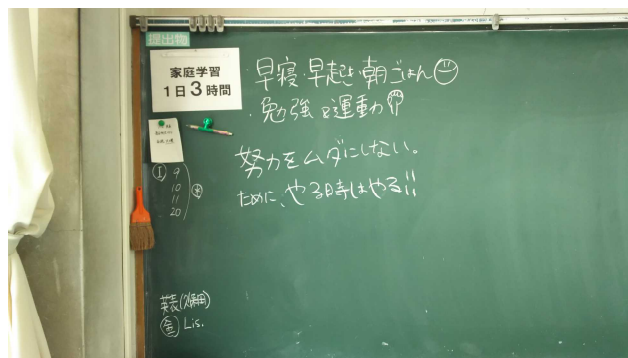 提出物
家庭学習
1日3時間
・早寝・早起き・朝ごはん
・勉強&運動
努力をムダにしない。
ために、やる時はやる!!
① 9
10
11
20
英表
金 Lis.